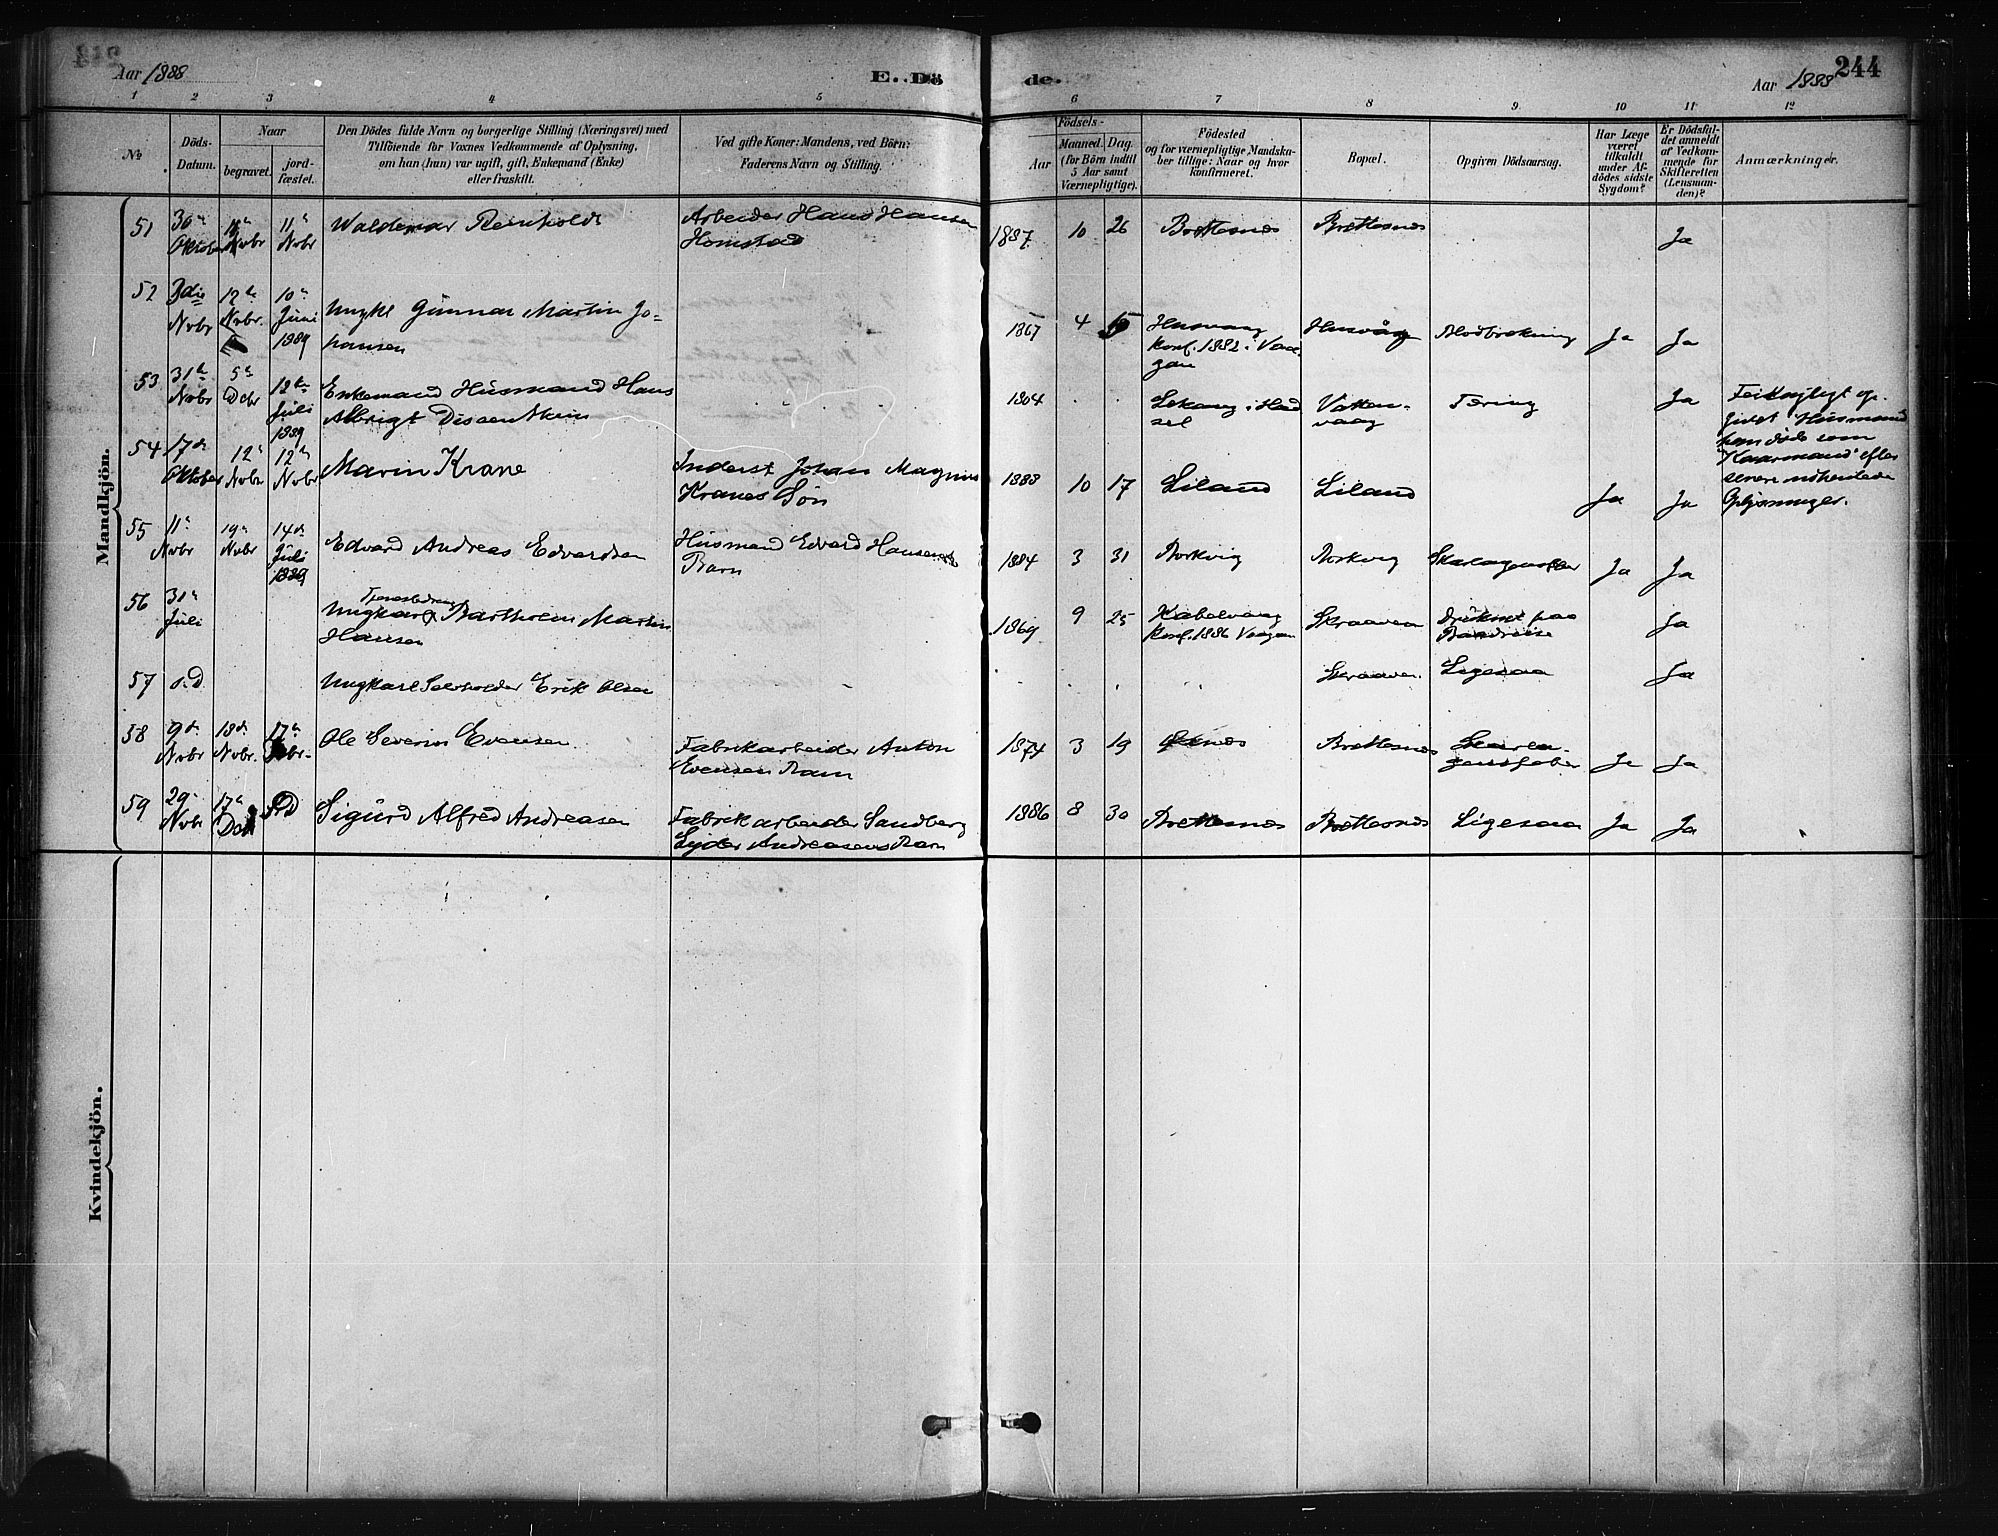 244
Aar 1888
E. Dö
de.
Aar 1888
1 2 3 4 5 6 7 8 9 10 11 12
№
Döds-
Datum.
Naar
begravet.
jord-
fæstet.
Den Dödes fulde Navn og borgerlige Stilling (Næringsvei) med
Tilföiende for Voxnes Vedkommende af Oplysning,
om han (hun) var ugift, gift, Enkemand (Enke)
eller fraskilt.
Ved gifte Koner: Mandens, ved Börn:
Faderens Navn og Stilling.
Födsels-
Aar
Maaned.
Dag.
(for Börn indtil
5 Aar samt
Værnepligtige).
Födested
og for værnepligtige Mandska-
ber tillige: Naar og hvor
konfirmeret.
Bopæl.
Opgiven Dödsaarsag.
Har Læge
været
tilkaldt
under Af-
dödes sidste
Sygdom?
Er Dödsfal-
det anmeldt
af Vedkom-
mende for
Skifteretten
(Lensman-
den)?
Anmærkninger.
Mandkjön.
51 30te 11te Waldemar Reinholdt Arbeider Hans Hansen 1887 10 26 Brettesnes Brettesnes Ja
Oktober Nvbr Nvbr Homstad
52 3die 12te 10de Ungkl Gunnar Martin Jo- 1867 4 Husvaag Husvåg Blodbrækning Ja Ja
Nvbr Nvbr. Juni
1889 hansen konf. 1882 i Vaa-
gan
53 31te 5te 12te Enkemand Husmand Hans 1804 . . i Had- Vatten- Tæring Ja
Nvbr Dcbr Juli
1889 Albrigt sel vaag
54 17de 12te 12te Marin Krane Inderst Johan Magnus 1888 10 17 Liland Liland Ja Ja
Oktober Nvbr Nvbr Kranes Sön
givet Husmand
han döde som
Kaarmand efter
senere indhentede
Oplysninger.
55 11te 19de 14de Edvard Andreas Edvardsen Husmand Edvard Hansens 1884 3 31 Borkvig Borkvig Ja Ja
Nvbr Nvbr Juli
1889 Barn
56 31te Tjenestedreng
Juli Ungkarl Bartholeus Martin 1869 9 25 Kabelvaag Skraaven Druknet paa Ja
Hansen konf. 1886 Vaagan
57 d.d Ungkarl Erik Olsen . . . Skraaven. Ligesaa Ja
58 9de 18de 17de Ole Severin Evensen Fabrikarbeider Anton 1874 3 19 Brettesnes Skarla- Ja Ja
Nvbr Nvbr. Evensen Barn gensfeber
59 29de 17de Sigurd Alfred Andreasen Fabrikarbeider Sandberg 1886 8 30 Brettesnes Brettesnes Ligesaa Ja Ja
Nvbr Andreasens Barn
Kvindekjön.